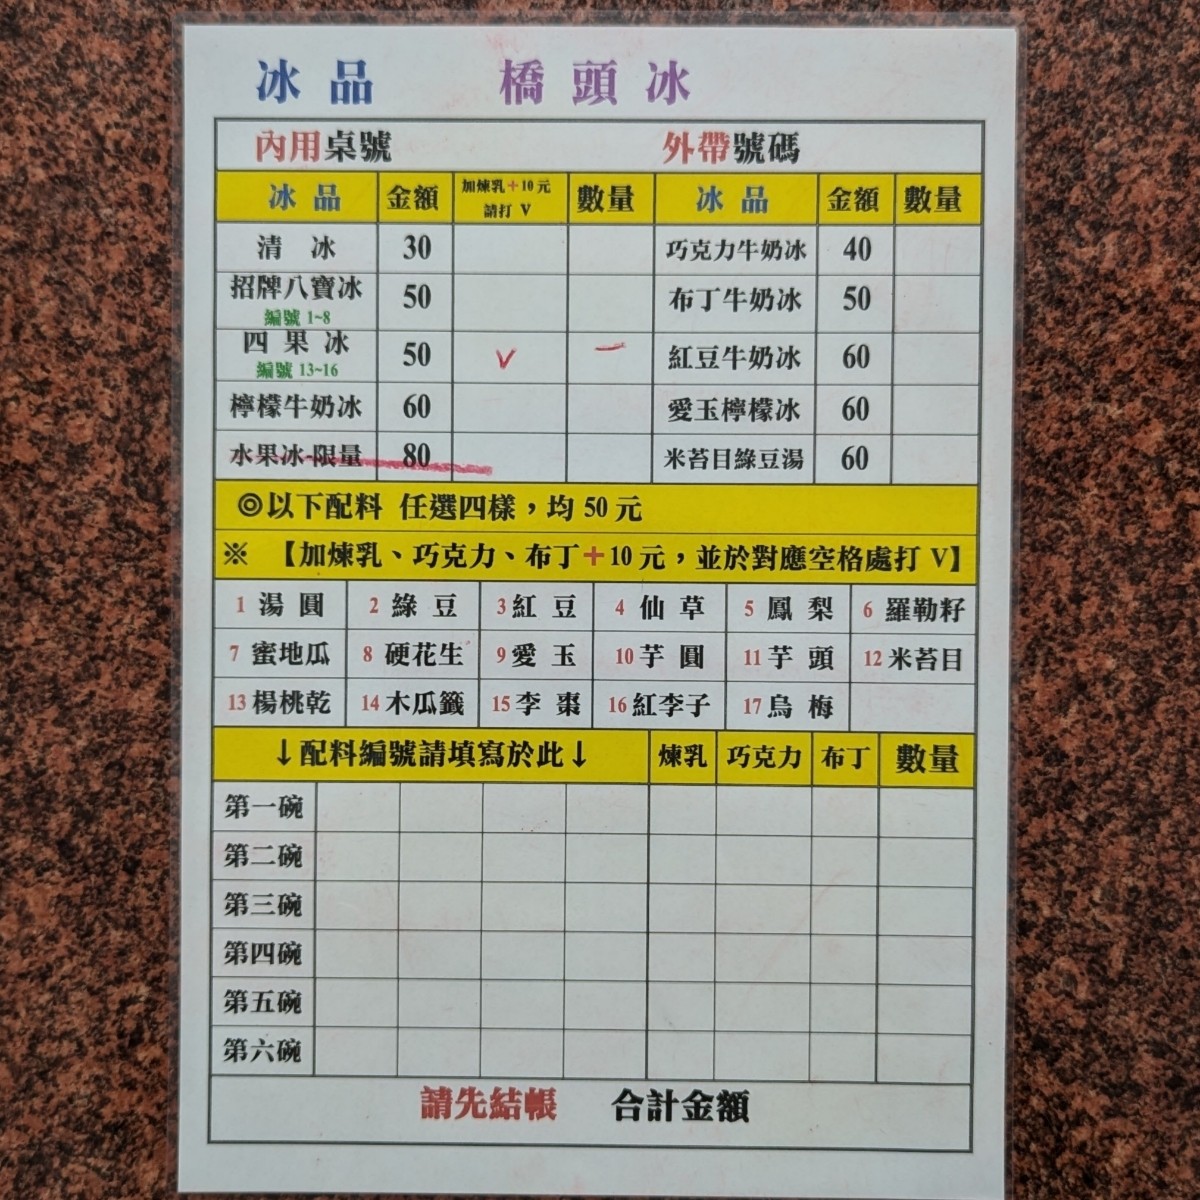 冰品 橋頭冰
內用桌號 外帶號碼
冰品 金額 加煉乳+10元 請打 V 數量 冰品 金額 數量
清冰 30 巧克力牛奶冰 40
招牌八寶冰 編號 1~8 50 布丁牛奶冰 50
四果冰 編號 13~16 50 V 一 紅豆牛奶冰 60
檸檬牛奶冰 60 愛玉檸檬冰 60
水果冰-限量 80 米苔目綠豆湯 60
◎以下配料 任選四樣，均 50 元
※ 【加煉乳、巧克力、布丁+10元，並於對應空格處打 V】
1 湯圓 2 綠豆 3 紅豆 4 仙草 5 鳳梨 6 羅勒籽
7 蜜地瓜 8 硬花生 9 愛玉 10 芋圓 11 芋頭 12 米苔目
13 楊桃乾 14 木瓜籤 15 李棗 16 紅李子 17 烏梅
↓配料編號請填寫於此↓ 煉乳 巧克力 布丁 數量
第一碗
第二碗
第三碗
第四碗
第五碗
第六碗
請先結帳 合計金額